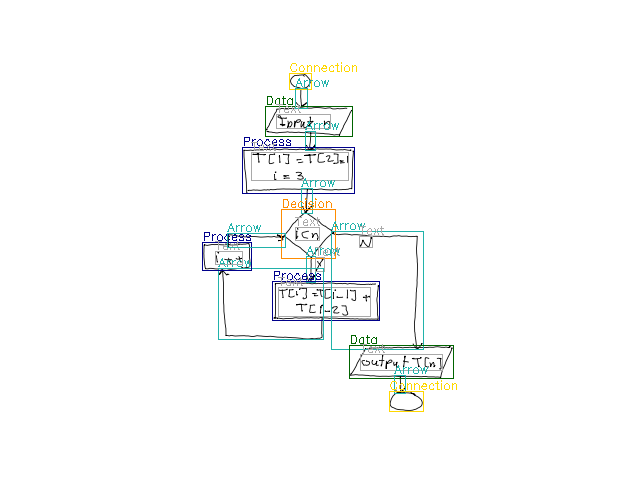 Connection
Arrow
Data
Text
Input n
Arrow
Process
T[1] = T[2]=1
i = 3
Arrow
Decision
Text
i<n
Arrow
Arrow
Text
N
Process
Text
i++
Arrow
Arrow
Text
Y
Process
Text
T[i] = T[i-1] +
T[i-2]
Data
Text
output T[n]
Arrow
Connection